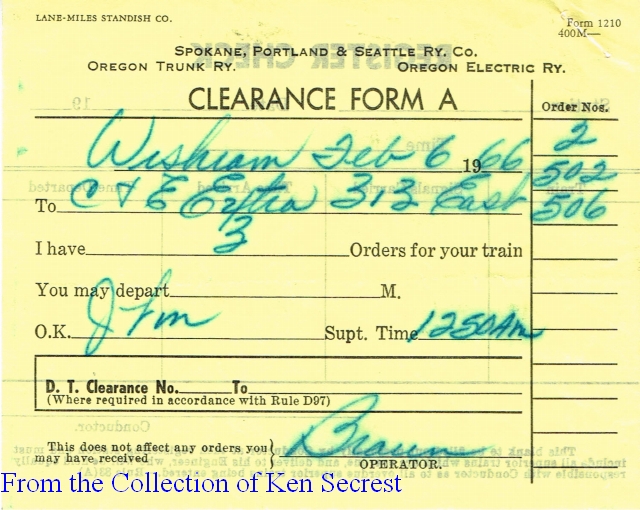 LANE-MILES STANDISH CO.
Form 1210
400M—
SPOKANE, PORTLAND & SEATTLE RY. CO.
OREGON TRUNK RY. OREGON ELECTRIC RY.
CLEARANCE FORM A
Order Nos.
2
Wishram Feb 6 1966
502
To C & E Extra 313 East
506
I have 3 Orders for your train
You may depart M.
O.K. Supt. Time 1250 Am
D. T. Clearance No. To
(Where required in accordance with Rule D97)
This does not affect any orders you
may have received
Braun
OPERATOR.
From the Collection of Ken Secrest